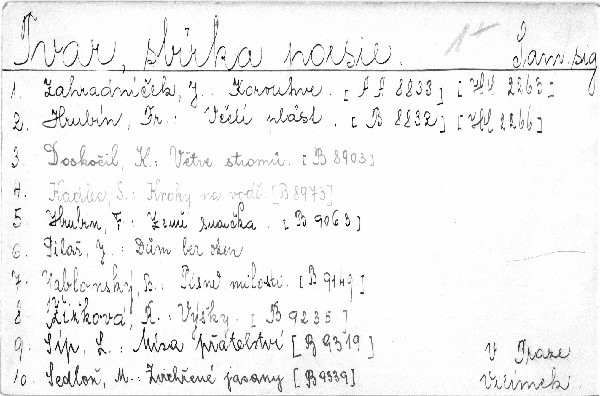 Tvar, sbírka poesie. 1x Sam. sig
1. Zahradníček, J.: Korouhve. [AA 8833] [HH 2263]
2. Hrubín, Fr.: Včelí plást. [B 8832] [HH 2266]
3. Doskočil, K.: Větve stromů. [B 8903]
4. Kadlec, S.: Kruhy na vodě [B 8973]
5. Hrubín, F.: Země sudička. [B 9063]
6. Pilař, J.: Dům bez oken
7. Jablonský, B.: Písně milosti. [B 9149]
8. Žižková, R.: Výšky. [B 9235]
9. Šíp, L.: Míza přátelství [B 9319]
10. Sedloň, M.: Zvichřené jasany [B 9339]
V Praze
Vyšímek.